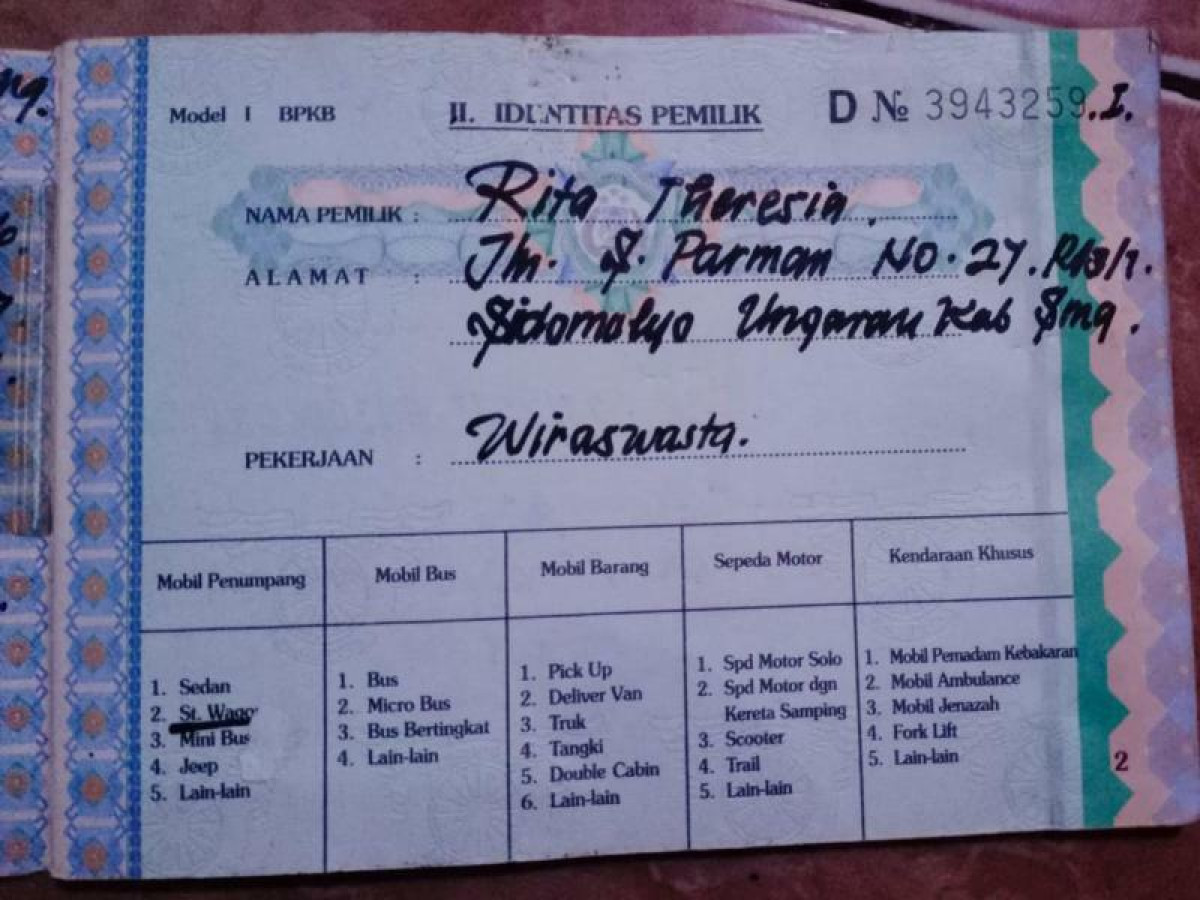 Model I BPKB
II. IDENTITAS PEMILIK
D № 3943259.I.
NAMA PEMILIK : Rita Theresia.
ALAMAT : Jln. S. Parman No. 27. R/3/1.
Sidomulyo Ungaran Kab Smg.
PEKERJAAN : Wiraswasta.
Mobil Penumpang
1. Sedan
2. St. Wagon
3. Mini Bus
4. Jeep
5. Lain-lain
Mobil Bus
1. Bus
2. Micro Bus
3. Bus Bertingkat
4. Lain-lain
Mobil Barang
1. Pick Up
2. Deliver Van
3. Truk
4. Tangki
5. Double Cabin
6. Lain-lain
Sepeda Motor
1. Spd Motor Solo
2. Spd Motor dgn
Kereta Samping
3. Scooter
4. Trail
5. Lain-lain
Kendaraan Khusus
1. Mobil Pemadam Kebakaran
2. Mobil Ambulance
3. Mobil Jenazah
4. Fork Lift
5. Lain-lain
2